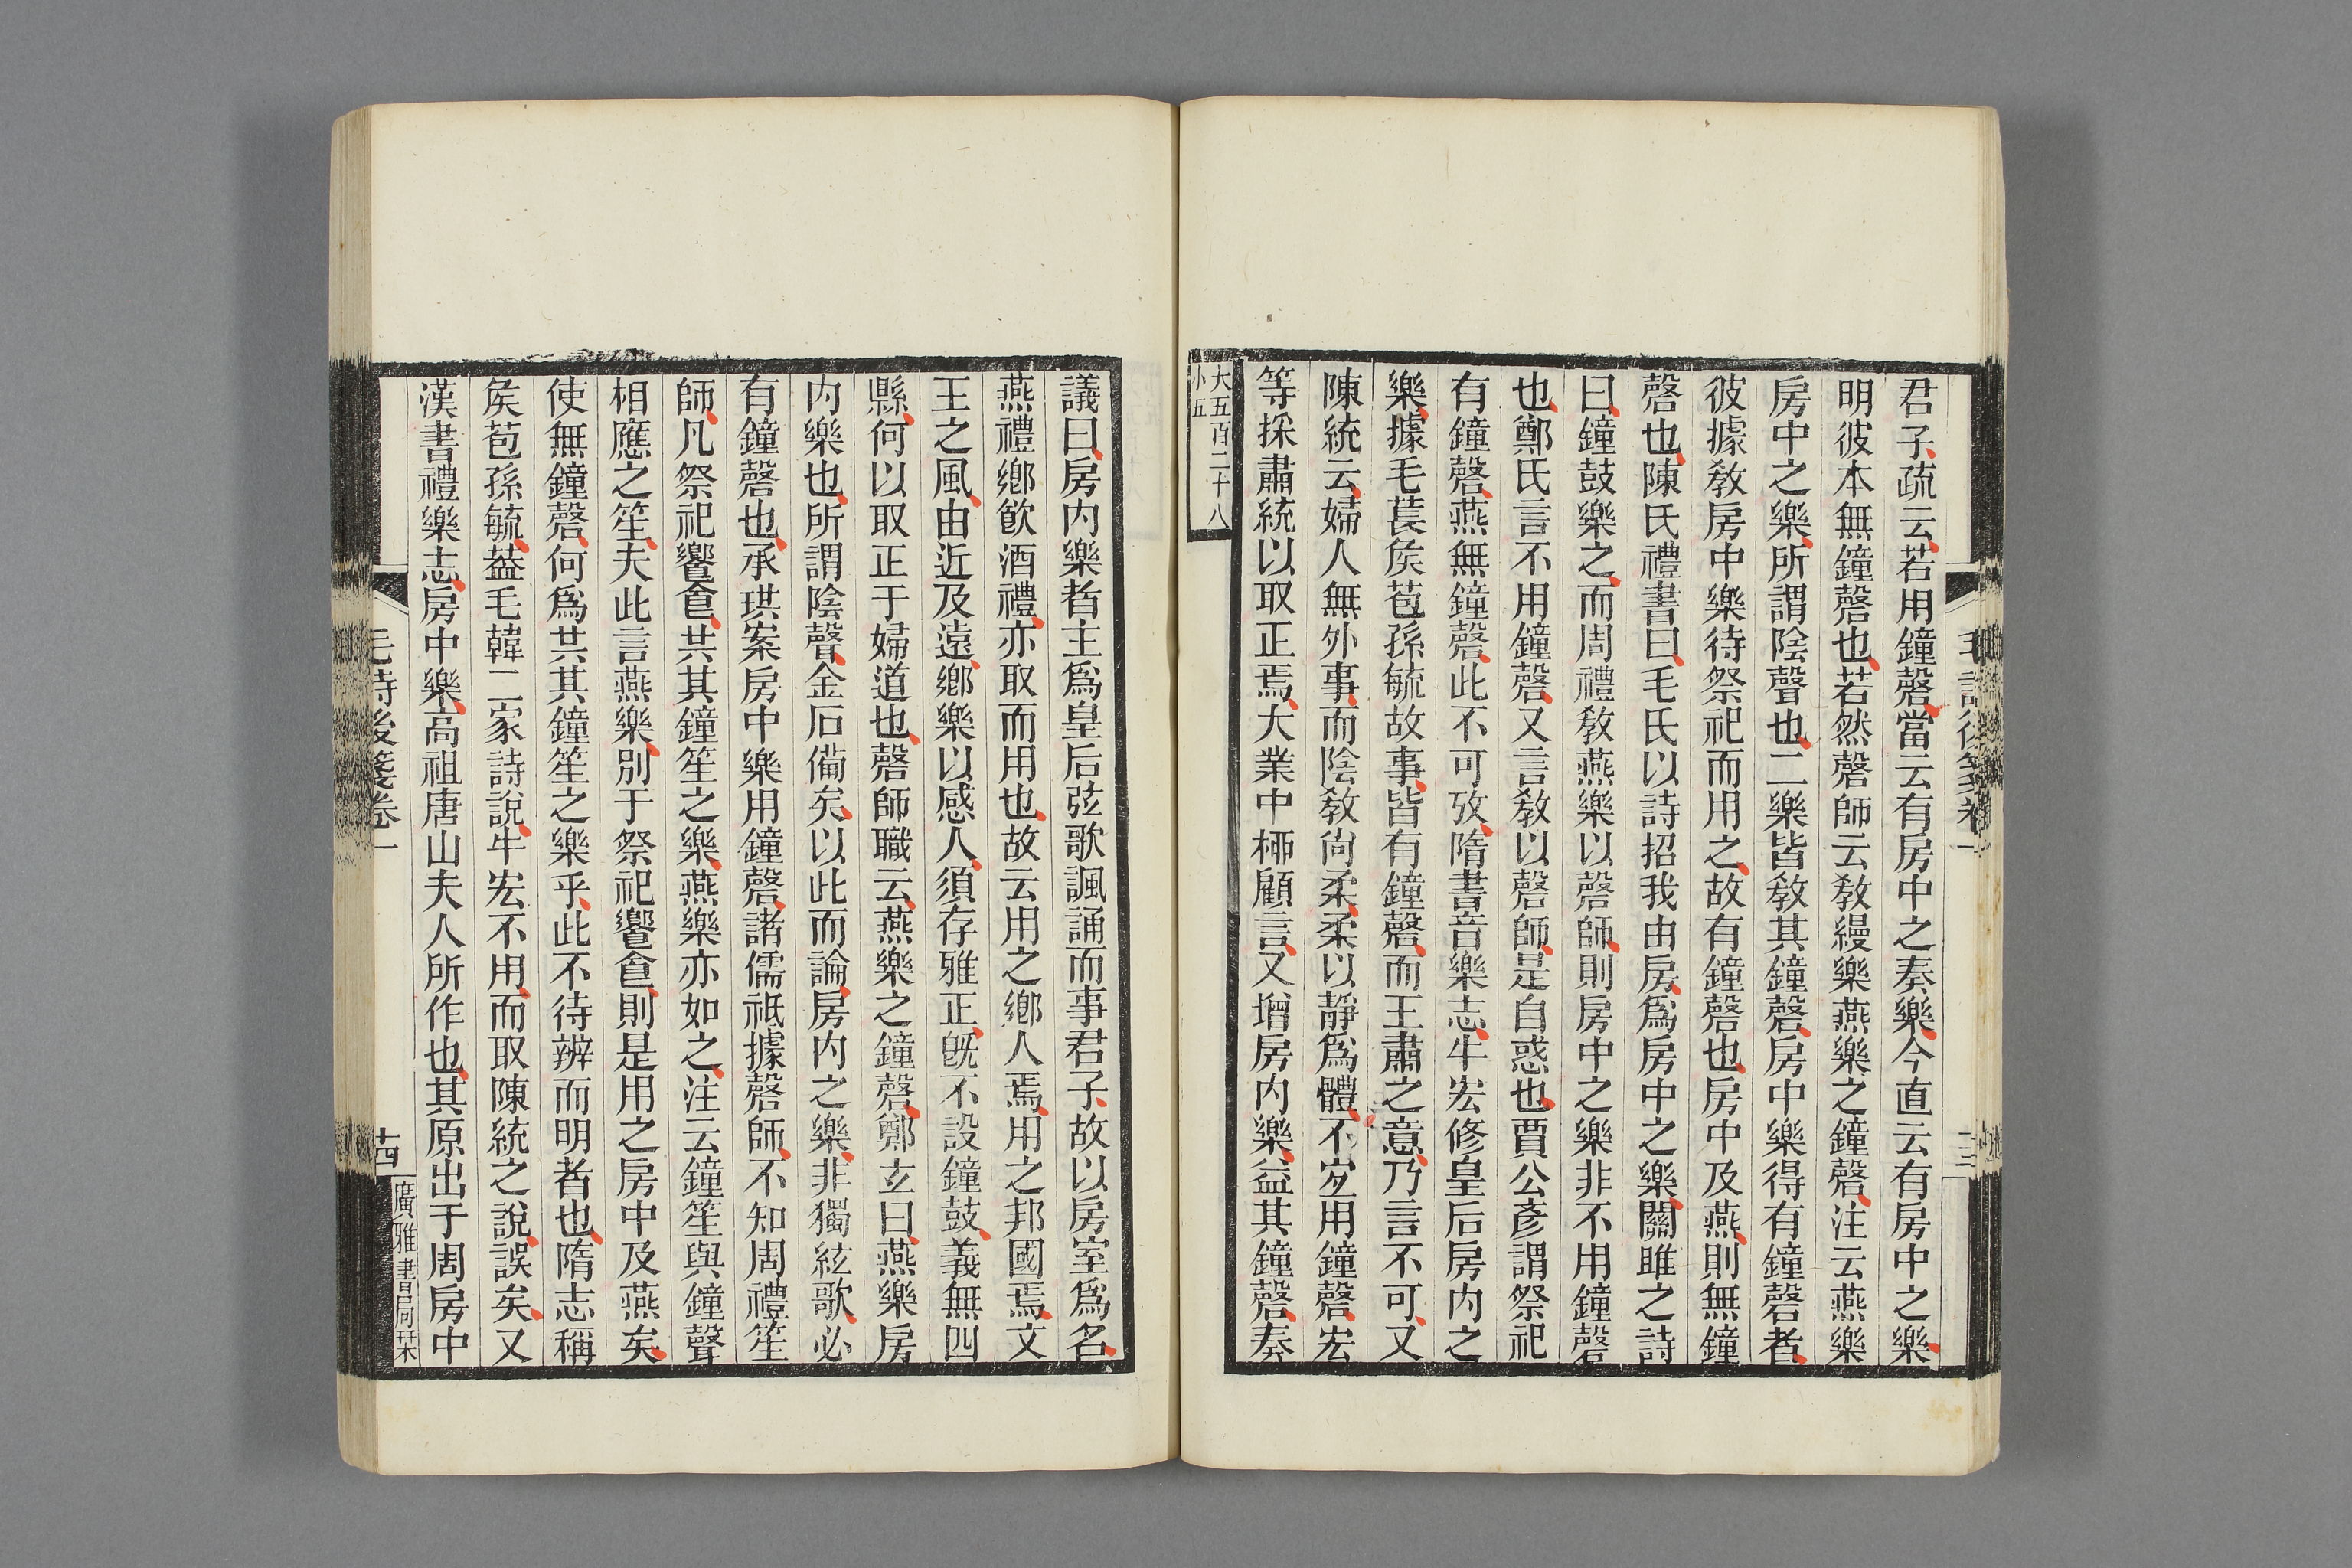 君子疏云若用鐘磬當云有房中之奏樂今直云有房中之樂
明彼本無鐘磬也若然磬師云敎縵樂燕樂之鐘磬注云燕樂
房中之樂所謂陰聲也二樂皆敎其鐘磬房中樂得有鐘磬者
彼據敎房中樂待祭祀而用之故有鐘磬也房中及燕則無鐘
磬也陳氏禮書曰毛氏以詩招我由房爲房中之樂關雎之詩
曰鐘鼓樂之而周禮敎燕樂以磬師則房中之樂非不用鐘磬
也鄭氏言不用鐘磬又言敎以磬師是自惑也賈公彥謂祭祀
有鐘磬燕無鐘磬此不可攷隋書音樂志牛宏修皇后房内之
樂據毛萇矦苞孫毓故事皆有鐘磬而王肅之意乃言不可又
陳統云婦人無外事而陰敎尙柔柔以靜爲體不宐用鐘磬宏
等採肅統以取正焉大業中桺顧言又增房内樂益其鐘磬奏
大五百二十八
小五
毛詩後箋卷一
議曰房内樂者主爲皇后弦歌諷誦而事君子故以房室爲名
燕禮鄉飮酒禮亦取而用也故云用之鄉人焉用之邦國焉文
王之風由近及遠鄉樂以感人須存雅正旣不設鐘鼓義無四
縣何以取正于婦道也磬師職云燕樂之鐘磬鄭玄曰燕樂房
内樂也所謂陰聲金石備矣以此而論房内之樂非獨絃歌必
有鐘磬也承珙案房中樂用鐘磬諸儒祗據磬師不知周禮笙
師凡祭祀饗食共其鐘笙之樂燕樂亦如之注云鐘笙與鐘聲
相應之笙夫此言燕樂別于祭祀饗食則是用之房中及燕矣
使無鐘磬何爲共其鐘笙之樂乎此不待辨而明者也隋志稱
矦苞孫毓葢毛韓二家詩說牛宏不用而取陳統之說誤矣又
漢書禮樂志房中樂高祖唐山夫人所作也其原出于周房中
毛詩後箋卷一
十四
廣雅書局栞